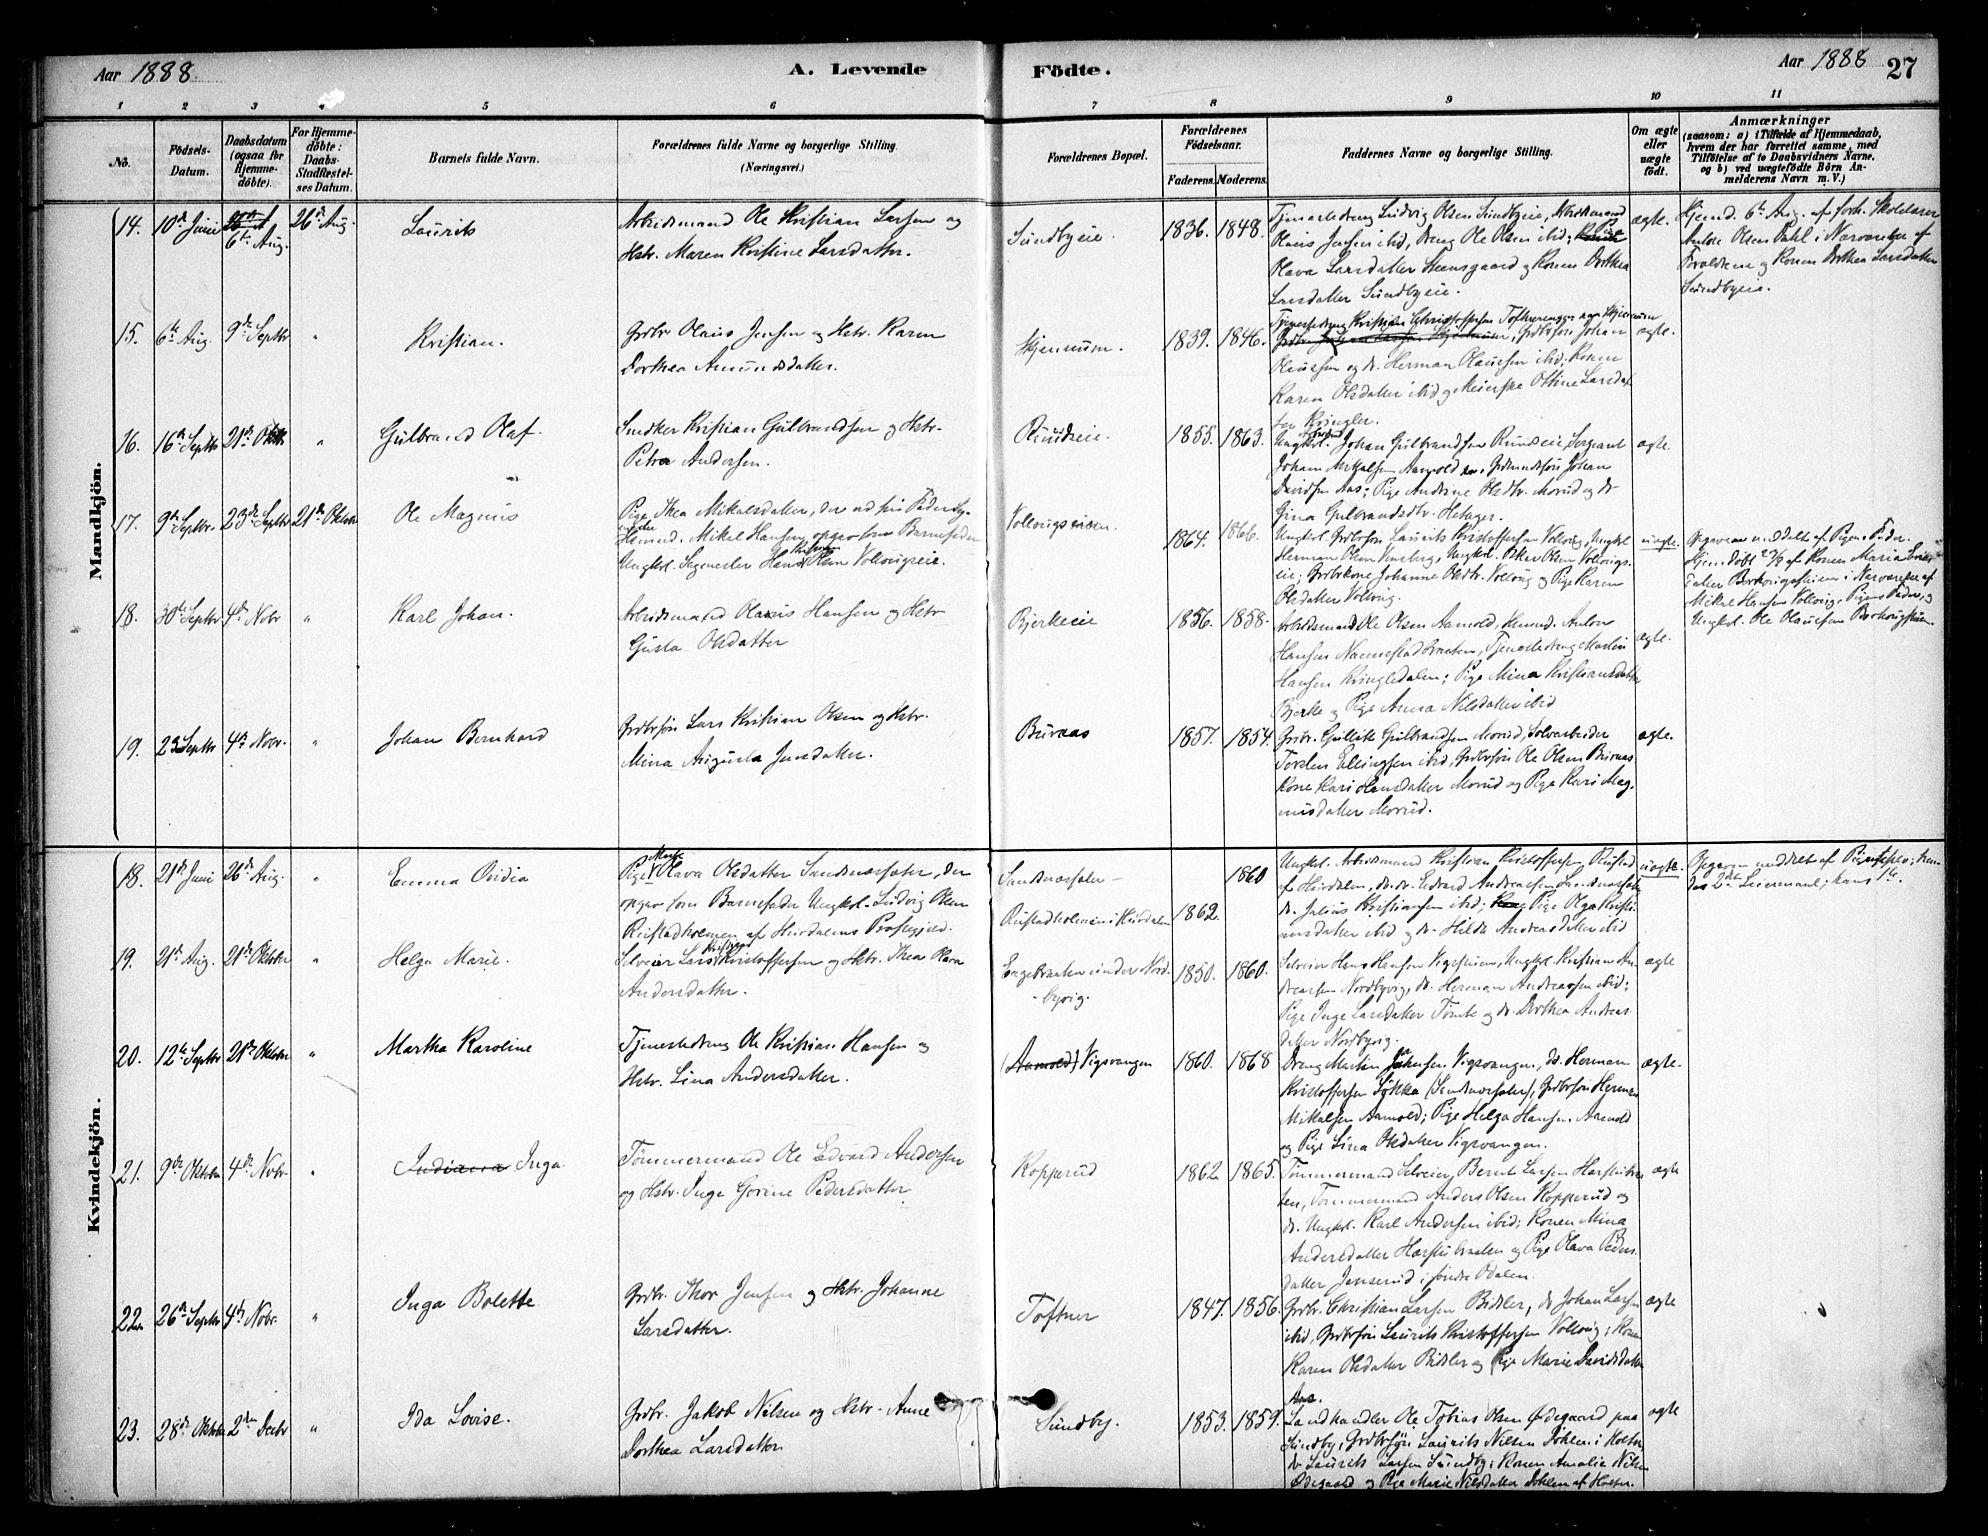 Aar 1888.
A. Levende
Födte.
Aar 1888
27
1 2 3 4 5 6 7 8 9 10 11
No.
Födsels-
Datum.
Daabsdatum
(ogsaa for
Hjemme-
döbte).
For Hjemme-
döbte:
Daabs-
Stadfæstel-
ses Datum.
Barnets fulde Navn.
Forældrenes fulde Navne og borgerlige Stilling.
(Næringsvei.)
Forældrenes Bopæl.
Forældrenes
Födselsaar.
Faderens. Moderens.
Faddernes Navne og borgerlige Stilling.
Om ægte
eller
uægte
födt.
Anmærkninger
(saasom: a) i Tilfælde af Hjemmedaab,
hvem der har forrettet samme, med
Tilföielse af to Daabsvidners Navne,
og b) ved uægtefödte Börn An-
melderens Navn m. V.)
Mandkjön.
14. 10de Juni
6te Aug.
26de Aug.
Laurits
Arbeidsmand Ole Kristian Larsen og
Hstr. Maren Kristine Larsdatter.
Sundbyeie.
1836. 1848.
Tjenestedreng Ludvig Olsen Sundbyeie, Arbeidsmand
Olaus Jensen ibid, Dreng Ole Olsen ibid; Pige
Olava Larsdatter Steensgaard og Konen Dorthea
Larsdatter Sundbyeie.
ægte.
Hjemd. 6te Aug. af forh. Skolelærer
Anton Olsen Dahl i Nærværelse af
Forældrene og Konen Dorthea Larsdatter
Sundbyeie.
15. 6te Aug. 9de Septbr "
Kristian.
Grdbr Olaus Jensen og Hstr. Karen
Dorthea Amundsdatter.
Skjennum.
1839. 1846.
Tjenestedreng Kristian Christoffersen
Grdbrsön Johan
Olaussen og do. Herman Olaussen ibid; Konen
Karen Olsdatter ibid og Meierske Ottine Larsdat
ter Kringler.
ægte.
16. 16de Septbr 21de Oktbr. "
Gulbrand Olaf.
Snedker Kristian Gulbrandsen og Hstr.
Petra Andersen.
Rundseie.
1855. 1863.
Ungkl. Johan Gulbrandsen Rundseie, Sergeant
Johan Mikalsen Aamold, Grdmandssön Johan
Davidsen Aas; Pige Andrine Olsdtr. Morud og do
Gina Gulbrandsdtr. Hetager.
ægte.
17. 9de Septbr. 23de Septbr 21de Oktober
Ole Magnus
Pige Thea Mikalsdatter, der ved sin Fader
Mikal Hansen opgav som Barnefader
Ungkl. Sagmester Hans Kristian Olsen Vollaugseie.
Vollaugseien.
1864. 1866.
Ungkl. Grdbrsön Laurits Kristoffersen Vollaug, Ungkl.
Herman Olsen Vensberg, Ungkl. Peter Olsen Vollaugs-
eie; Grdbrkone Johanne Olsdtr. Vollaug og Pige Karen
Olsdatter Vollaug.
uægte.
Opgaven meddelt af Pigens Fader.
Hjemdöbt af Konen Maria Lars-
datter i Nærværelse af
Mikal Hansen Vollaug, Pigens Fader, og
Ungkl. Ole Olaussen
18. 30te Septbr 4de Nobr "
Karl Johan.
Arbeidsmand Olaus Hansen og Hstr
Gusta Olsdatter
Bjerkeeie
1856. 1858.
Arbeidsmand Ole Olsen Aamold, Anton
Hansen Nannestadbraaten, Tjenestedreng Martin
Hansen Kringledalen; Pige Mina Kristiansdatter
Bjerke og Pige Anna Nilsdatter ibid
ægte.
19. 23 Septbr 4de Nobr. "
Johan Bernhard
Grdbrsön Lars Kristian Olsen og Hstr.
Mina Augusta Jensdatter.
Buraas
1857. 1854.
Grdbr. Gullik Gulbrandsen Morud, Solvarbeider
Torsten Ellingsen ibid, Grdbrsön Ole Olsen Buraas
Kone Kari Hansdatter Morud og Pige Kari Mag-
nusdatter Morud.
ægte.
Kvindekjön.
18. 21de Juni 26de Aug. "
Emma Ovidia
Pige Marte Olava Olsdatter Sandnæssæter, der
opgav som Barnefader Ungkl. Ludvig Olsen
Rustadholmen af Hurdalens Præstegjeld.
Sandnæssæter -
Rustadholmen i Hurdalen
1862. 1860
Ungkl. Arbeidsmand Kristian Kristoffersen Rustad
af Hurdalen, do. do. Edvard Andreassen Sandnæssæter,
do. Julius Kristiansen ibid; Pige Olga Kristi-
ansdatter ibid og do. Hilda Andreasdatter ibid
uægte.
Opgaven meddelt af Pigen
des 2det Leiermaal; hans 1te.
19. 21de Aug. 21de Oktober "
Helga Marie.
Selveier Lars Kristian Kristoffersen og Hstr. Thea Olava
Andersdatter.
Engebraaten under Nord-
byvig.
1850. 1860.
Selveier Hans Hansen Vigsteien, Ungkl. Kristian An-
dreassen Nordbyvig, do. Herman Andreassen ibid;
Pige Inge Larsdatter Tömte og do. Dorthea Andreas-
datter Nordbyvig.
ægte
20. 12te Septbr 21de Oktober "
Martha Karoline
Tjenestedreng Ole Kristian Hansen og
Hstr. Lina Andersdatter.
(Aamold) Vigsvangen
1860. 1868
Dreng Martin Johansen Vigsvangen, do. Herman
Kristoffersen Lökka (Sandnæssæter), Grdbrsön Herman
Mikalsen Aamold; Pige Helga Hansen Aamold
og Pige Lina Olsdatter Vigsvangen.
ægte.
21. 9de Oktober 4de Nobr "
Indiana Inga
Tömmermand Ole Edvard Andersen
og Hstr. Inge Gorine Pedersdatter
Kopperud
1862 1865.
Tömmermand Selveier Bernt Larsen Hærstubraa-
ten, Tömmermand Anders Olsen Kopperud og
do. Ungkl. Karl Andersen ibid; Konen Mina
Andersdatter Hærstubraaten og Pige Olava Peders-
datter Janserud i söndre Odalen.
ægte
22. 26de Septbr 4de Nobr. "
Inga Bolette
Grdbr. Thor Jensen og Hstr. Johanne
Larsdatter.
Toftner
1847. 1856.
Grdbr. Christian Larsen Bidsler, do Johan Larsen
ibid, Grdbrsön Laurits Kristoffersen Vollaug; Konen
Karen Olsdatter Bidsler og Pige Marie Davidsdatter
Aas.
ægte
23. 28de Oktober 2den Decbr "
Ida Lovise.
Grdbr. Jakob Nilsen og Hstr. Anne
Dorthea Larsdatter
Sundby.
1853. 1859.
Landhandler Ole Tobias Olsen Ödegaard paa
Sundby, Grdbrsön Laurits Nilsen Döhlen i Holter,
do Laurits Larsen Sundby; Konen Amalie Nilsen
Ödegaard og Pige Marie Nilsdatter Döhlen af Holter.
ægte